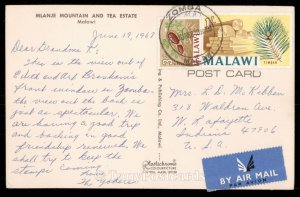 MLANJE MOUNTAIN AND TEA ESTATE
Malawi
June 19, 1968
Dear Grandma K,
This is the view out of
Edith and Art Brenham's
front window in Zomba.
The view out the back is
just as spectacular. We
are having a good trip
and looking forward to
friendship renewal. We
shall try to keep the
stamps coming
Love
The Yoders
ZOMBA
MALAWI
MALAWI
TIMBER
POST CARD
Mrs. L. D. McKibben
318 Waldron Ave.
W. Lafayette
Indiana 47906
U.S.A.
BY AIR MAIL
PAR AVION